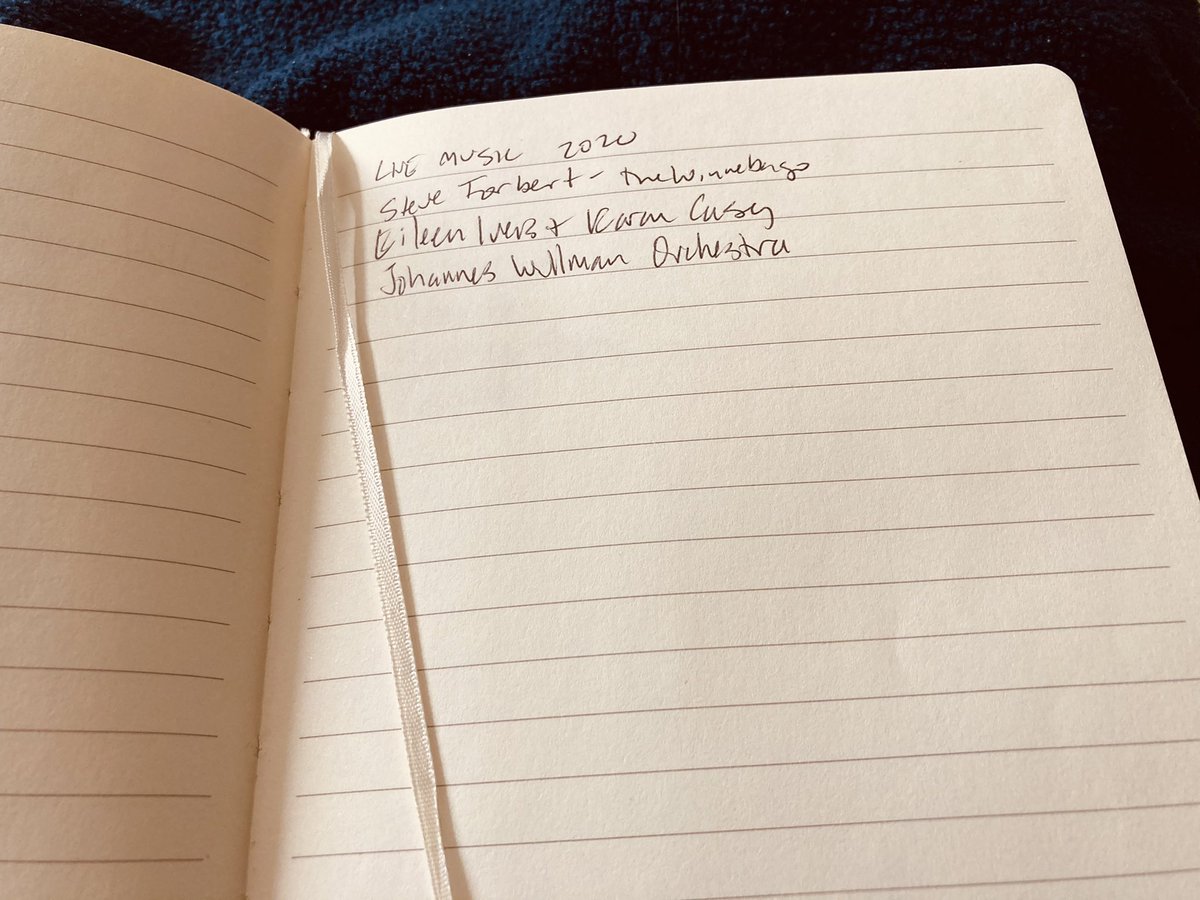 LIVE MUSIC 2020
Steve Forbert - the Winnebago
Eileen Ivers + Karan Casey
Johannes Wallman Orchestra